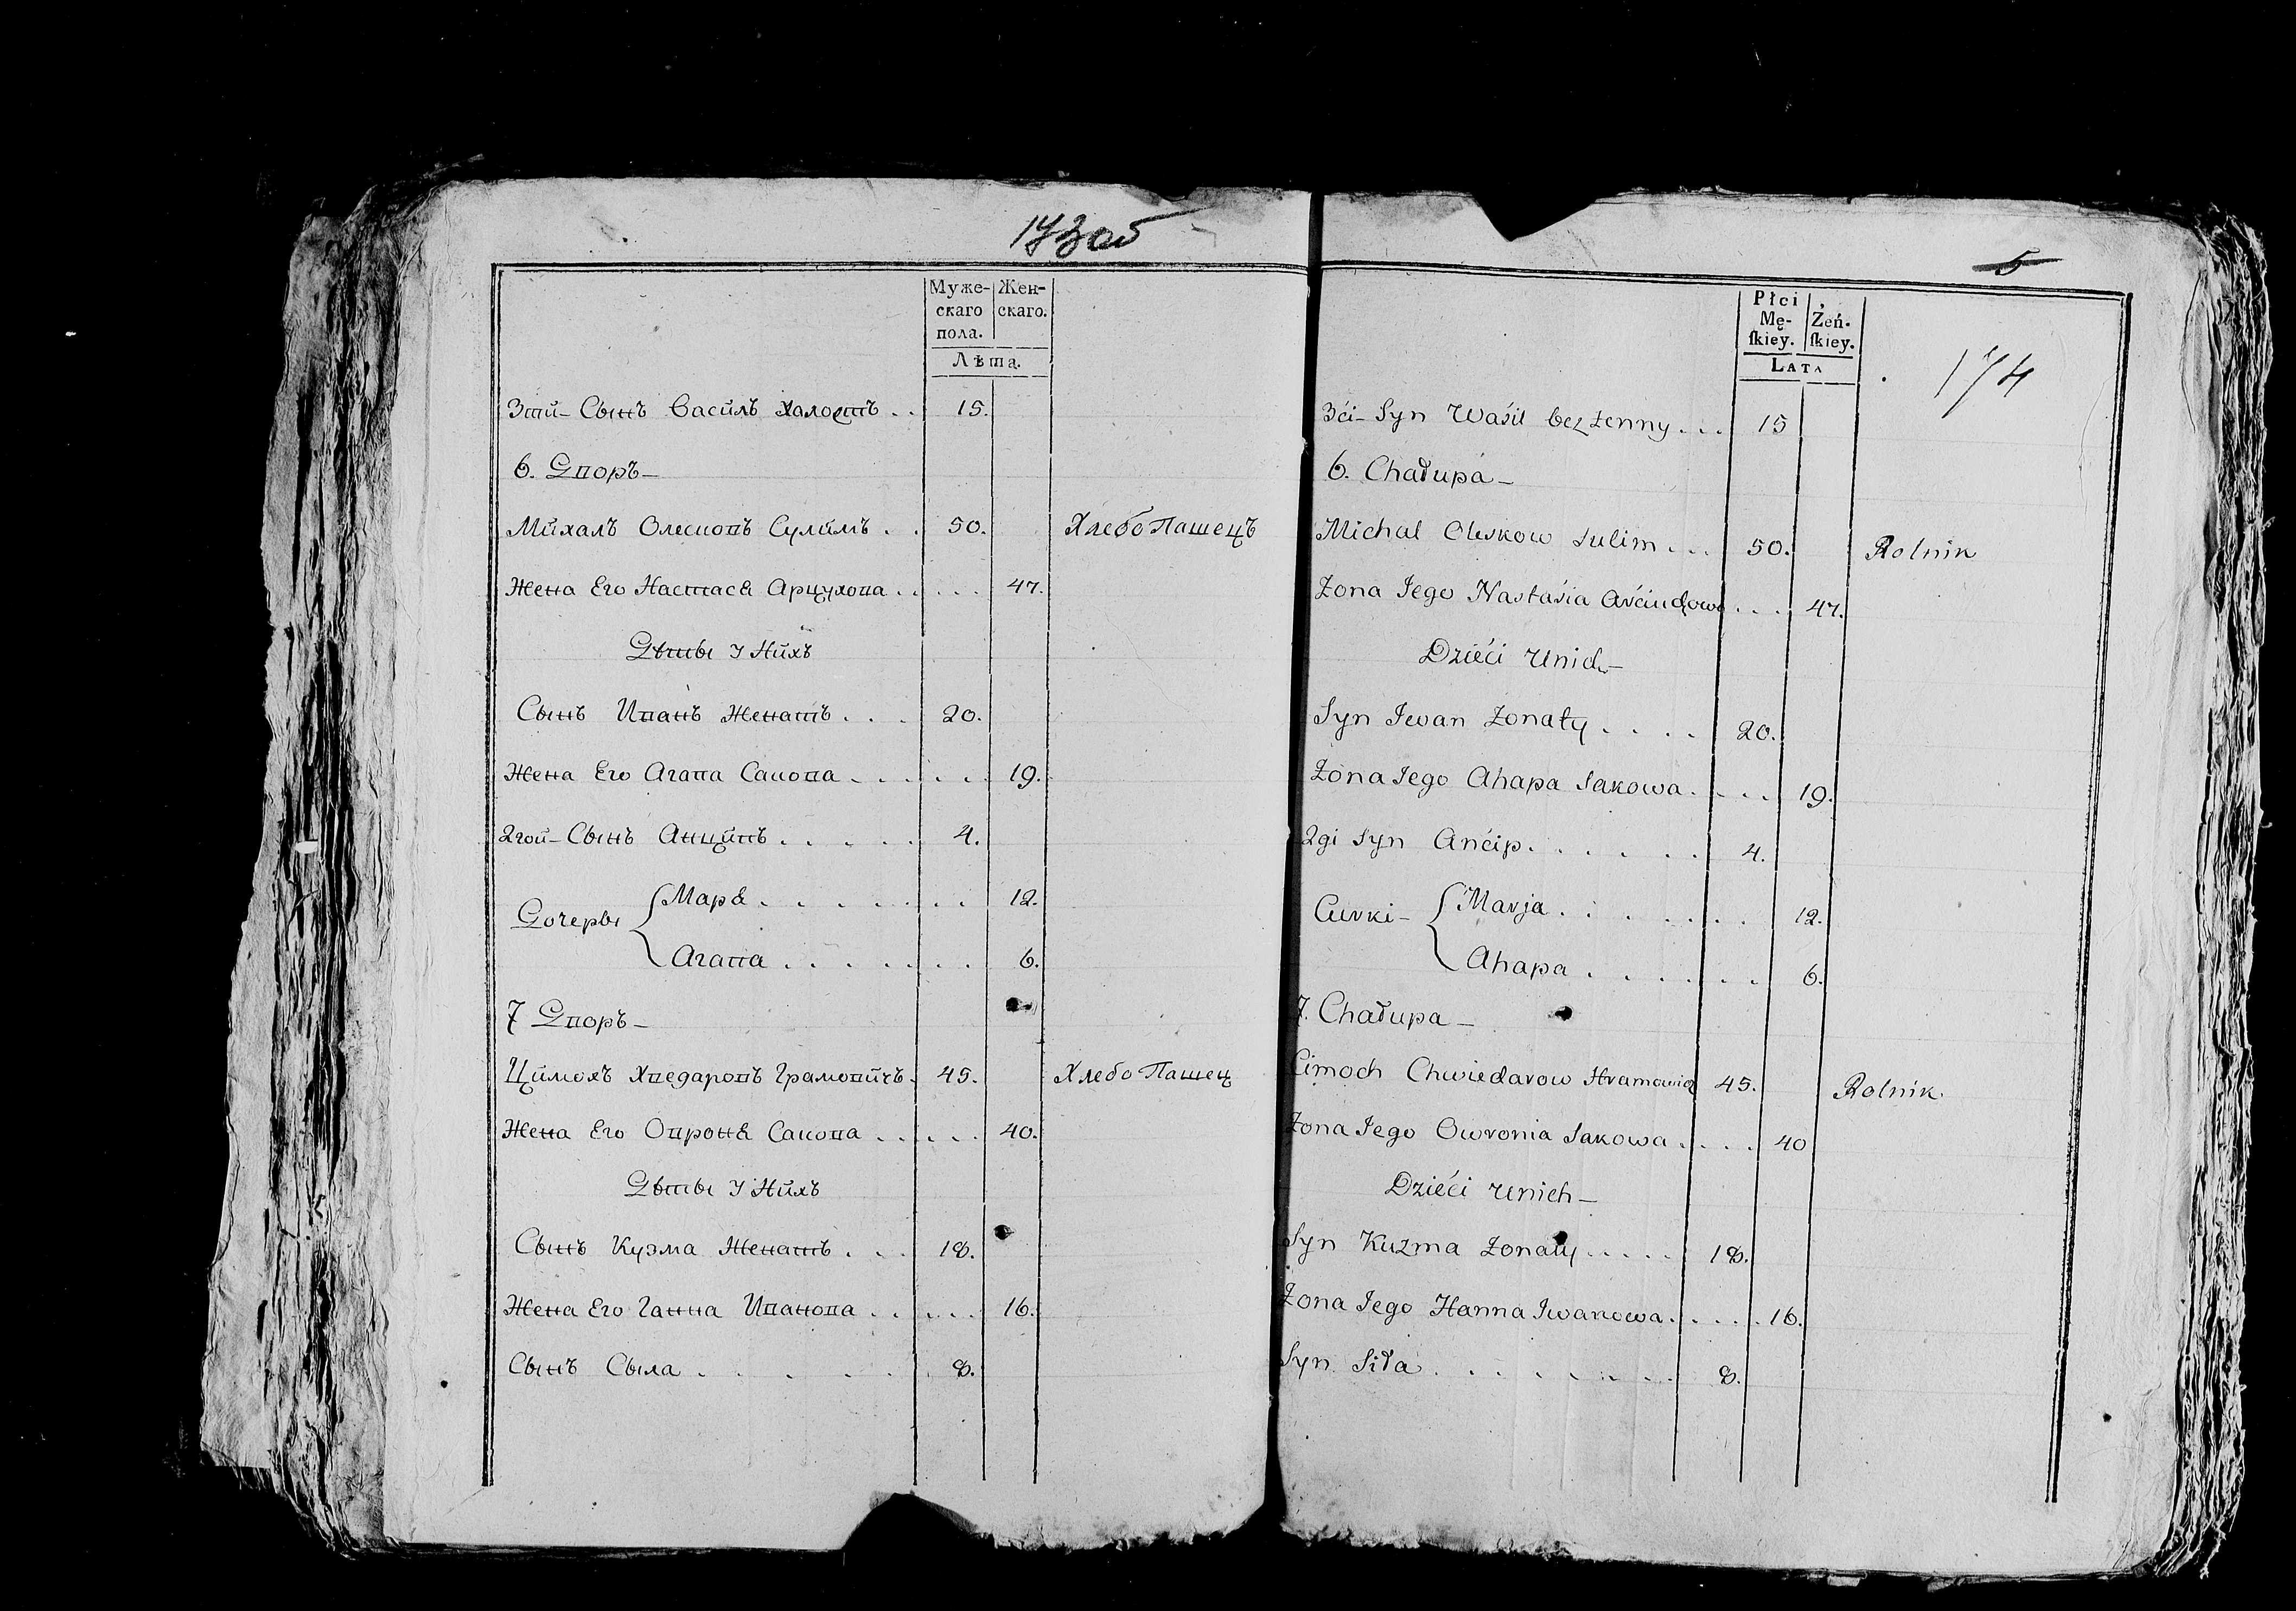 173об
Муже-
скаго
пола.
Жен-
скаго.
Лѣта.
3тй- Сынъ Васйлъ Халостъ . . 15.
6. Дворъ-
Мйхалъ Олесковъ Сулймъ . . 50. ХлебоПашецъ
Жена Его Настасѣ Арцухова . . . . . 47.
Дѣты У Нйхъ
Сынъ Иванъ Женатъ . . . 20.
Жена Его Агапа Сакова . . . . . 19.
2гой- Сынъ Анцйпъ . . . . . 4.
Дочеры
Марѣ . . . . . . . . 12.
Агапа . . . . . . . 6.
7 Дворъ-
Цймохъ Хведаровъ Грамовйчъ. 45. ХлебоПашец
Жена Его Овронѣ Сакова . . . . . 40.
Дѣты У Нйхъ
Сынъ Кузма Женатъ . . . 18.
Жена Его Ганна Иванова . . . . . 16.
Сынъ Сыла . . . . . . 8.
5
Płci
Mę-
ſkiey.
Żeń-
ſkiey.
LATA
174
3ci- Syn Waśil bezżenny . . . 15
6. Chałupa-
Michal Oleskow Sulim . . . 50. Rolnik
Żona Iego Nastaśia Arciuchowa . . . 47.
Dzieći unich-
Syn Iwan Żonaty . . . . 20.
Żona Iego Ahapa Sakowa . . . . 19.
2gi Syn Ancip . . . . . . 4.
Curki-
Marja . . . . . . . 12.
Ahapa . . . . . . . 6.
7. Chałupa-
Cimoch Chwiedarow Hramowicz 45. Rolnik.
Żona Iego Owronia Sakowa . . . . 40
Dzieći unich-
Syn Kuzma żonaty . . . . . 18.
Żona Iego Hanna Iwanowa . . . . . 16.
Syn Siła . . . . . . . . 8.